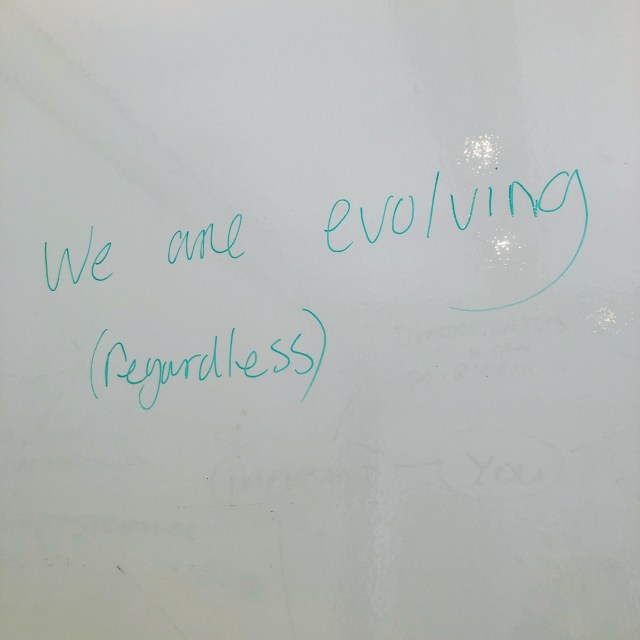 We are evolving
(regardless)
You